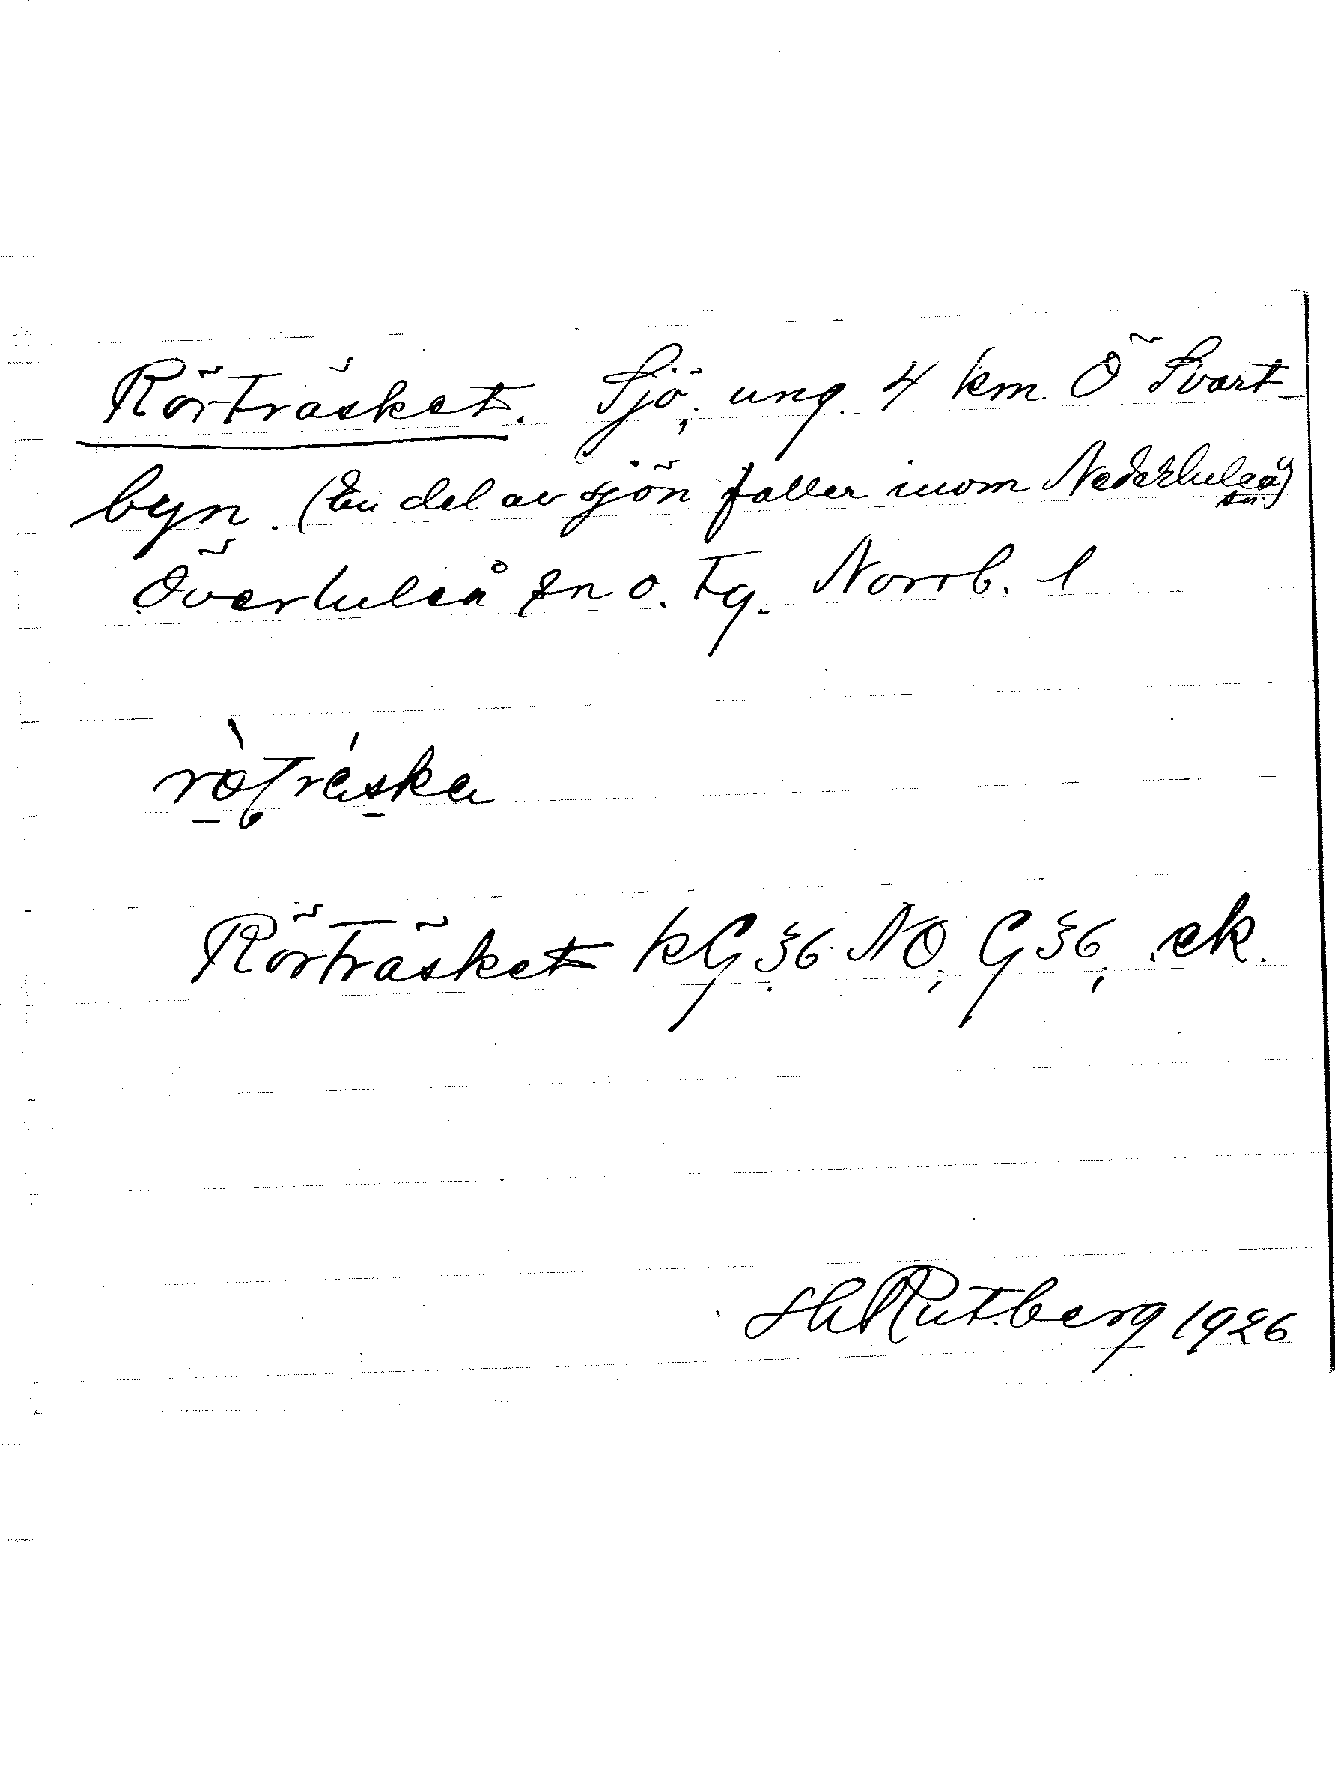 Rörträsket. Sjö, ung. 4 km Ö Svart-
byn. (En del av sjön faller inom Nederluleå sn)
Överluleå sn o. tg. Norrb. l
Rörträsket kG 36 NO, G 36, ek.
H Rutberg 1926